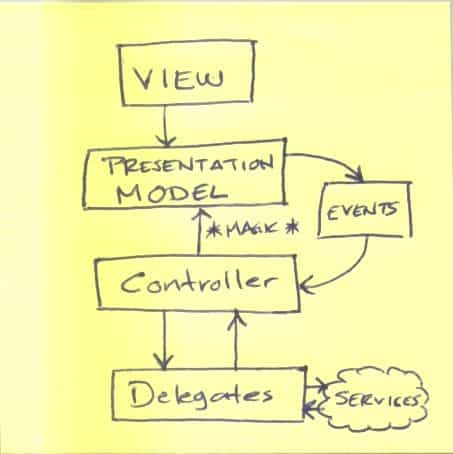 VIEW
PRESENTATION
MODEL
EVENTS
*MAGIC*
Controller
Delegates
SERVICES